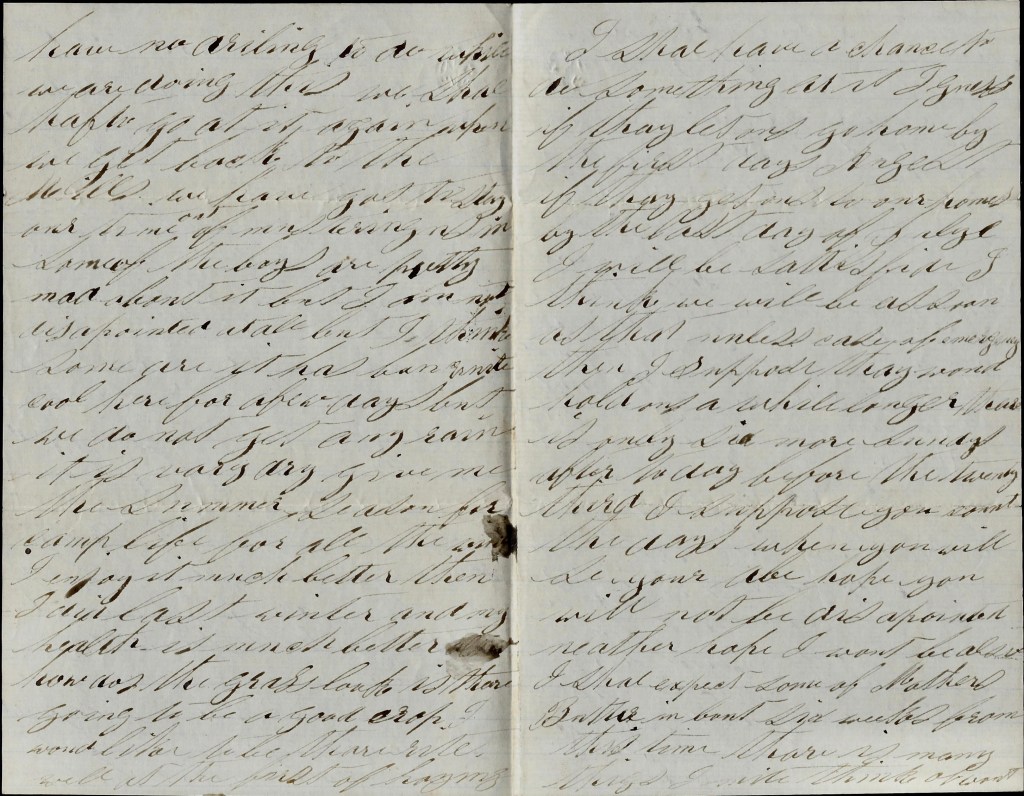 have no driling to do while
we are doing this we shal
hafto go at it again when
we get back to the
we have got to stay
our time of mustering us in
some of the boys are pretty
mad about it but I am not
disapointed atall but I think
some are it has ban quite
cool here for afew days but
we do not get any rain
it is vary dry give me
the Summer Season for
camp life for all the
I enjoy it much better then
I did last winter and my
health is much better
how dos the grass look is thare
going to be a good crop I
woud like to be thare
well at the of haying
I shal have a chance to
do something at it I guess
if thay let us go home by
the first days Augest
if thay get us to our homes
by the last day of
I will be sattisfide I
think we will be as soon
as that unless case of emergency
then I suppose thay woud
hold us a while longer thare
is only six more Sundys
after to day before the twenty
third I suppose you count
the days when you will
see your Abe hope you
will not be disapointed
neather hope I wont be
I shal expect some of Mothers
Butter in bout six weeks from
this time thare is many
things I think about